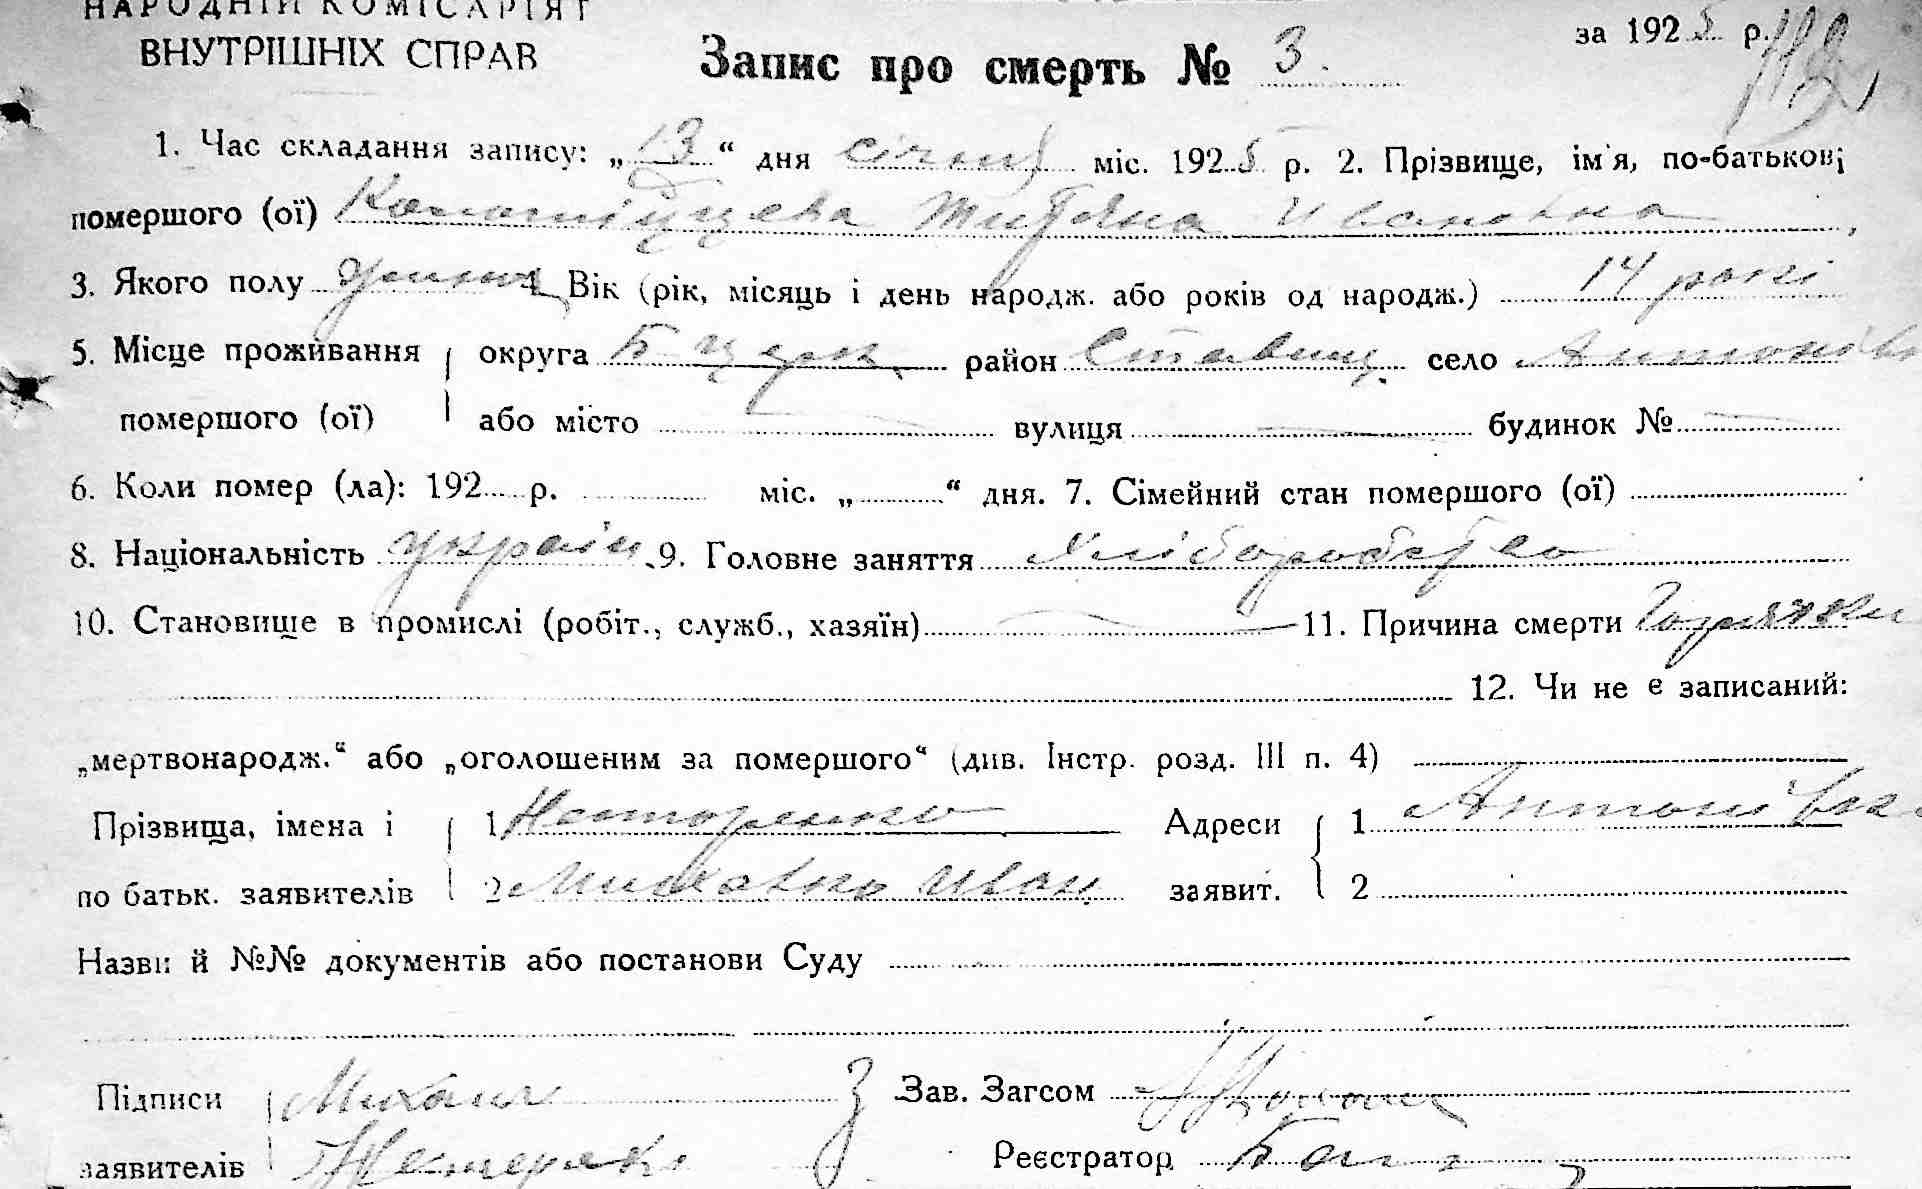 НАРОДНІЙ КОМІСАРІЯТ
ВНУТРІШНІХ СПРАВ
Запис про смерть № 3.
за 1925 р.
1. Час складання запису: „13“ дня січня міс. 1925 р. 2. Прізвище, ім'я, по-батькові
помершого (ої) Ивановна,
3. Якого полу 4. Вік (рік, місяць і день народж. або років од народж.) 14 років
5. Місце проживання { округа Б церк. район Ставищ. село Антонівка
помершого (ої) або місто вулиця будинок №
6. Коли помер (ла): 192 р. міс. „ “ дня. 7. Сімейний стан помершого (ої)
8. Національність україн. 9. Головне заняття хліборобство
10. Становище в промислі (робіт., служб., хазяїн) 11. Причина смерти
12. Чи не є записаний:
„мертвонародж.“ або „оголошеним за помершого“ (див. Інстр. розд. III п. 4)
Прізвища, імена і { 1 Нестеренко Адреси { 1 Антонівка
по батьк. заявителів 2 Иван заявит. 2
Назви й №№ документів або постанови Суду
Підписи Зав. Загсом
заявителів Реєстратор